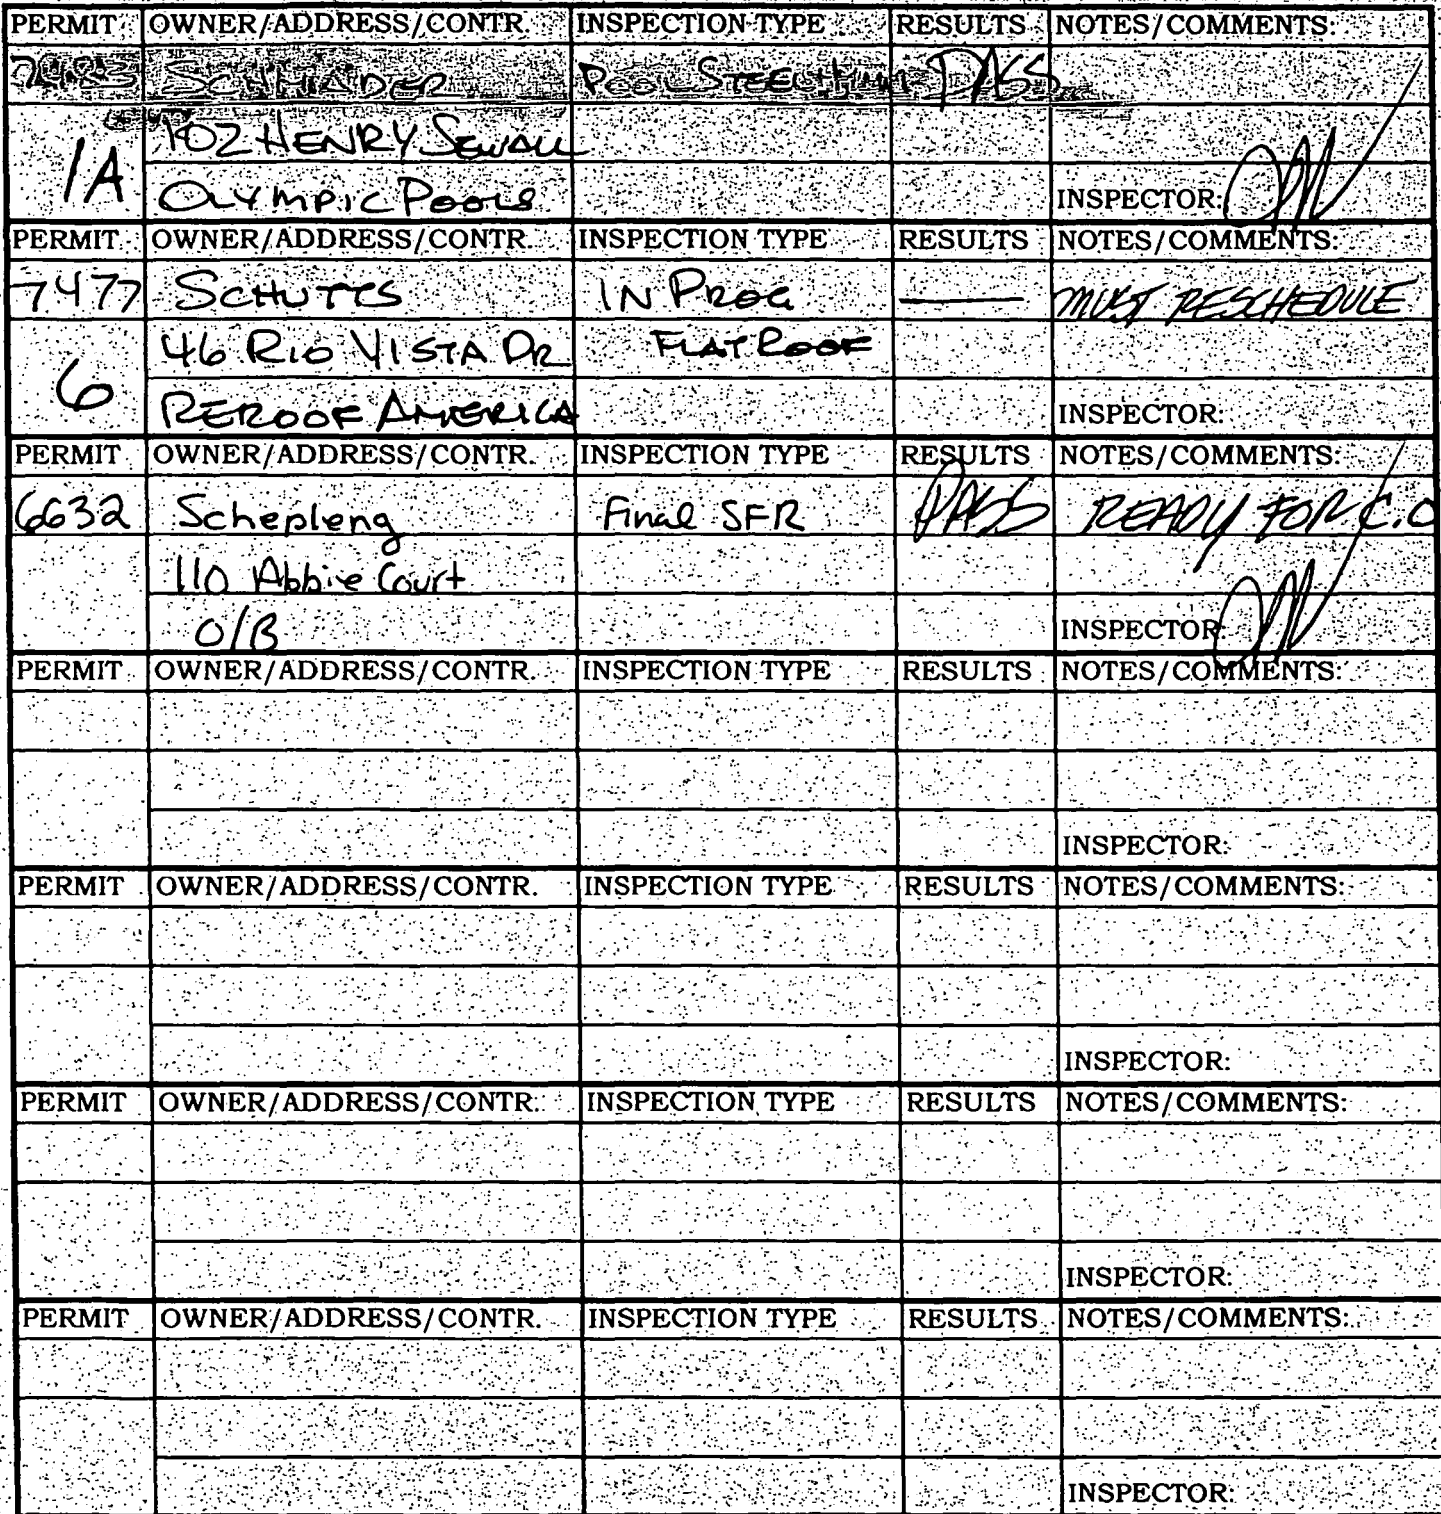 PERMIT OWNER/ADDRESS/CONTR. INSPECTION TYPE RESULTS NOTES/COMMENTS:
POOL STEEL PASS
102 HENRY SEWALL
1A OLYMPIC POOLS INSPECTOR:
PERMIT OWNER/ADDRESS/CONTR. INSPECTION TYPE RESULTS NOTES/COMMENTS:
7477 SCHUTTS IN PROG — MUST RESCHEDULE
46 RIO VISTA DR FLAT ROOF
6 REROOF AMERICA INSPECTOR:
PERMIT OWNER/ADDRESS/CONTR. INSPECTION TYPE RESULTS NOTES/COMMENTS:
6632 Schepleng Final SFR PASS READY FOR C.O
110 Abbie Court
O/B INSPECTOR:
PERMIT OWNER/ADDRESS/CONTR. INSPECTION TYPE RESULTS NOTES/COMMENTS:
INSPECTOR:
PERMIT OWNER/ADDRESS/CONTR. INSPECTION TYPE RESULTS NOTES/COMMENTS:
INSPECTOR:
PERMIT OWNER/ADDRESS/CONTR. INSPECTION TYPE RESULTS NOTES/COMMENTS:
INSPECTOR:
PERMIT OWNER/ADDRESS/CONTR. INSPECTION TYPE RESULTS NOTES/COMMENTS:
INSPECTOR: